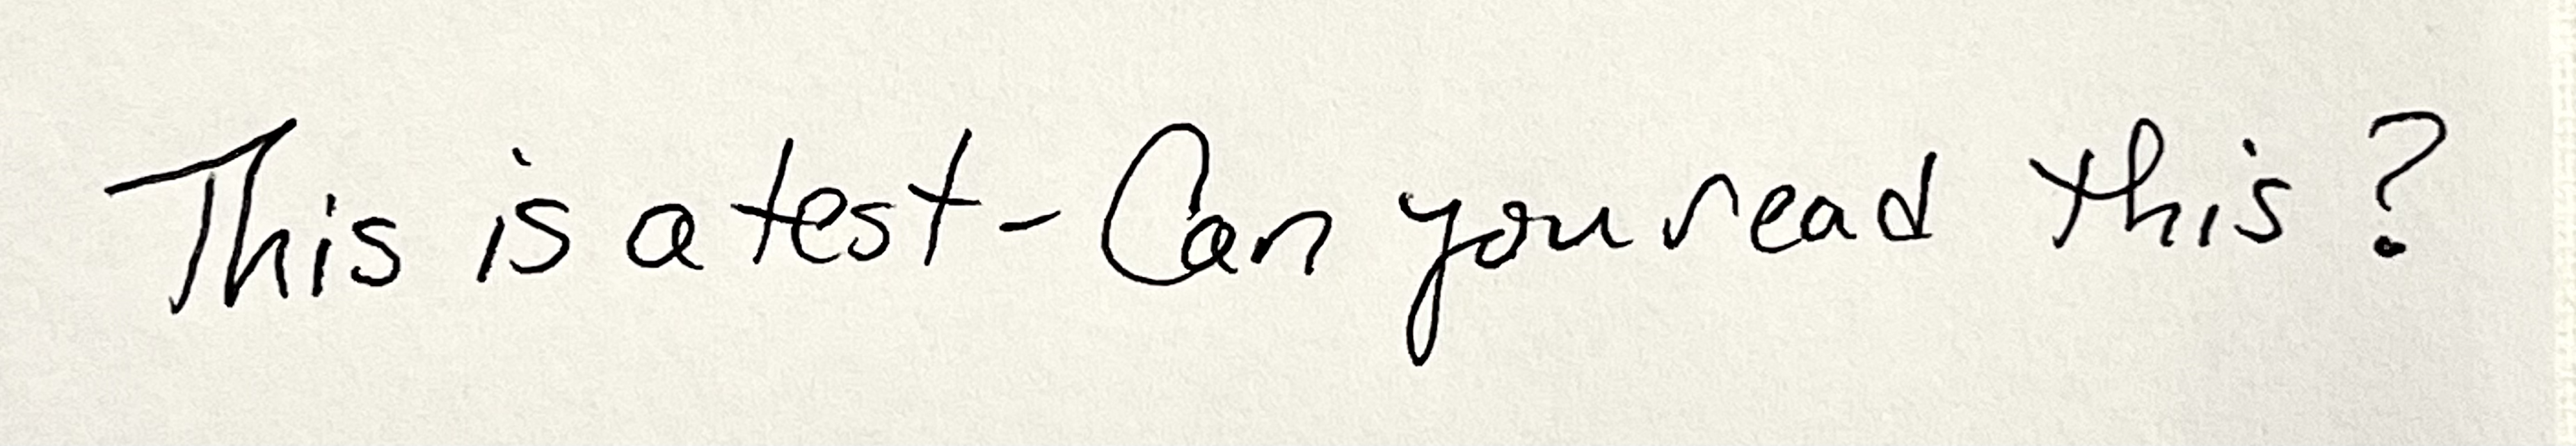 This is a test - Can you read this?